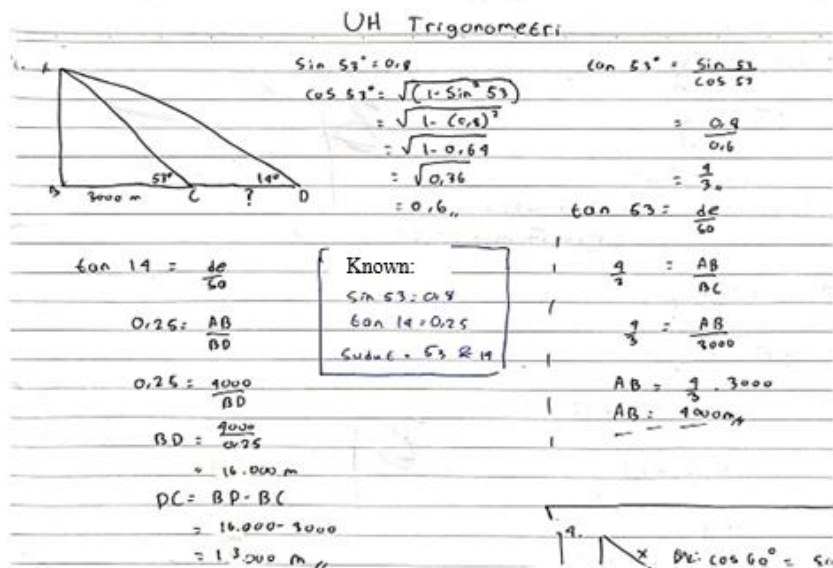 UH Trigonometri
1.
A
B
53°
C
14°
D
3000 m
?
Sin 53° = 0,8
cos 53° = √(1 - Sin² 53)
= √1 - (0,8)²
= √1 - 0,64
= √0,36
= 0,6
tan 53° = Sin 53 / cos 53
= 0,8 / 0,6
= 4/3
tan 53 = de/sa
4/3 = AB/BC
4/3 = AB/3000
AB = 4/3 . 3000
AB = 4000 m
Known:
Sin 53 = 0,8
tan 14 = 0,25
Sudut = 53 & 14
tan 14 = de/sa
0,25 = AB/BD
0,25 = 4000/BD
BD = 4000/0,25
= 16.000 m
DC = BD - BC
= 16.000 - 3000
= 13.000 m
4.
x
cos 60° =